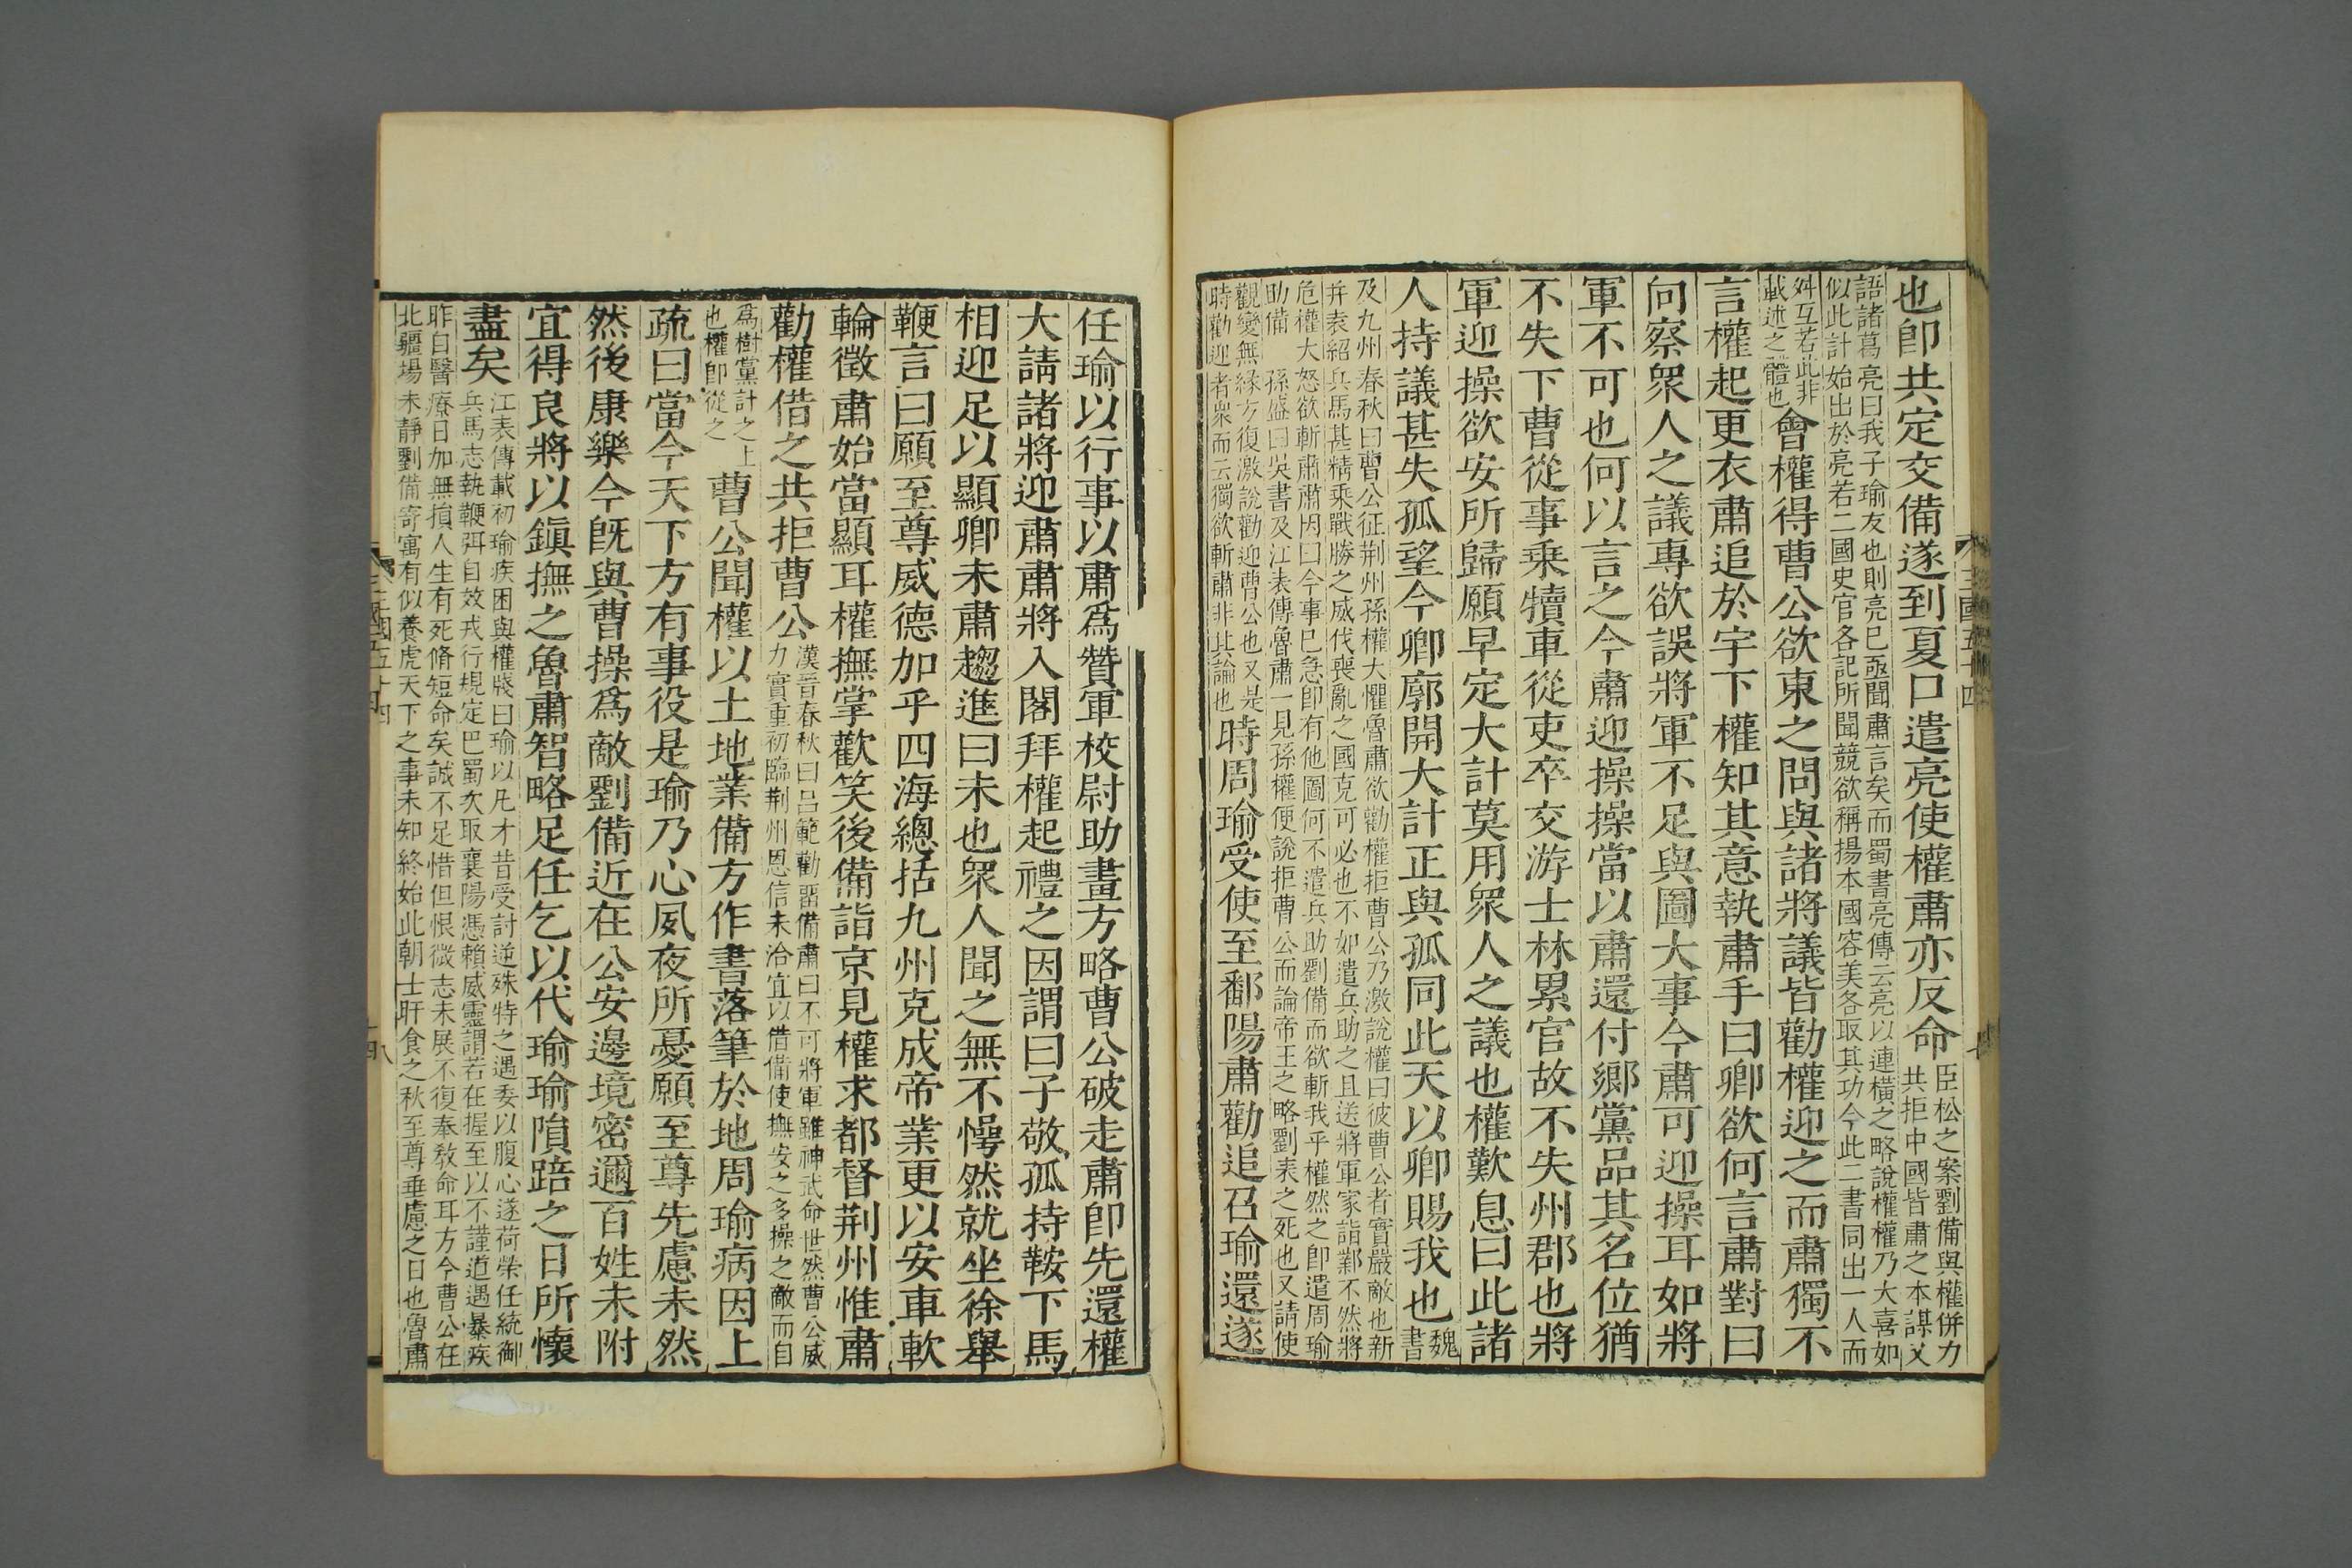 也卽共定交備遂到夏口遣亮使權肅亦反命臣松之案劉備與權併力共拒中國皆肅之本謀又
語諸葛亮曰我子瑜友也則亮已亟聞肅言矣而蜀書亮傳云亮以連橫之略說權權乃大喜如
似此計始出於亮若二國史官各記所聞競欲稱揚本國容美各取其功今此二書同出一人而
舛互若此非載述之體也會權得曹公欲東之問與諸將議皆勸權迎之而肅獨不
言權起更衣肅追於宇下權知其意執肅手曰卿欲何言肅對曰
向察衆人之議專欲誤將軍不足與圖大事今肅可迎操耳如將
軍不可也何以言之今肅迎操操當以肅還付鄉黨品其名位猶
不失下曹從事乗犢車從吏卒交游士林累官故不失州郡也將
軍迎操欲安所歸願早定大計莫用衆人之議也權歎息曰此諸
人持議甚失孤望今卿廓開大計正與孤同此天以卿賜我也魏書
及九州春秋曰曹公征荆州孫權大懼魯肅欲勸權拒曹公乃激說權曰彼曹公者實嚴敵也新
幷袁紹兵馬甚精乗戰勝之威伐喪亂之國克可必也不如遣兵助之且送將軍家詣鄴不然將
危權大怒欲斬肅肅因曰今事已急卽有他圖何不遣兵助劉備而欲斬我乎權然之卽遣周瑜
助備 孫盛曰吳書及江表傳魯肅一見孫權便說拒曹公而論帝王之略劉表之死也又請使
觀變無緣方復激說勸迎曹公也又是時勸迎者衆而云獨欲斬肅非其論也時周瑜受使至鄱陽肅勸追召瑜還遂
任瑜以行事以肅爲贊軍校尉助畫方略曹公破走肅卽先還權
大請諸將迎肅肅將入閤拜權起禮之因謂曰子敬孤持鞍下馬
相迎足以顯卿未肅趨進曰未也衆人聞之無不愕然就坐徐舉
鞭言曰願至尊威德加乎四海總括九州克成帝業更以安車軟
輪徵肅始當顯耳權撫掌歡笑後備詣京見權求都督荆州惟肅
勸權借之共拒曹公漢晉春秋曰呂範勸畱備肅曰不可將軍雖神武命世然曹公威力實重初臨荆州恩信未洽宜以借備使撫安之多操之敵而自
爲樹黨計之上也權卽從之曹公聞權以土地業備方作書落筆於地周瑜病因上
疏曰當今天下方有事役是瑜乃心夙夜所憂願至尊先慮未然
然後康樂今旣與曹操爲敵劉備近在公安邊境密邇百姓未附
宜得良將以鎭撫之魯肅智略足任乞以代瑜瑜隕踣之日所懷
盡矣江表傳載初瑜疾困與權牋曰瑜以凡才昔受討逆殊特之遇委以腹心遂荷榮任統御兵馬志執鞭弭自效戎行規定巴蜀次取襄陽憑賴威靈謂若在握至以不謹道遇暴疾
昨自醫療日加無損人生有死脩短命矣誠不足惜但恨微志未展不復奉敎命耳方今曹公在
北疆場未靜劉備寄寓有似養虎天下之事未知終始此朝士旰食之秋至尊垂慮之日也魯肅